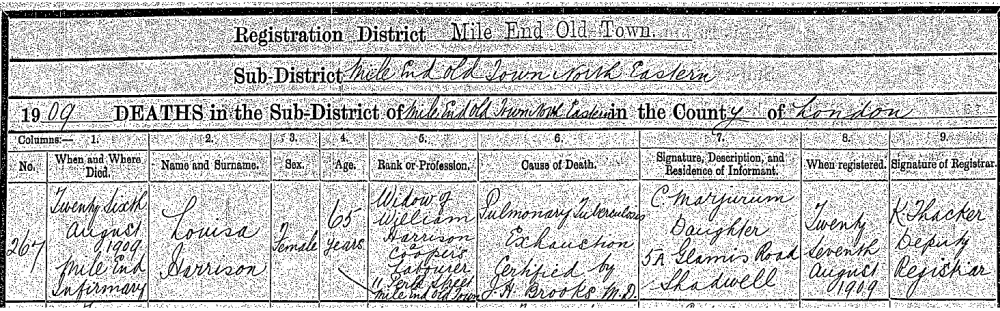 Registration District Mile End Old Town.
Sub-District Mile End Old Town North Eastern
1909 DEATHS in the Sub-District of Mile End Old Town North Eastern in the County of London
Columns:— 1. 2. 3. 4. 5. 6. 7. 8. 9.
No. When and Where Died. Name and Surname. Sex. Age. Rank or Profession. Cause of Death. Signature, Description, and Residence of Informant. When registered. Signature of Registrar
267
Twenty Sixth
August
1909
Mile End
Infirmary
Louisa
Harrison
Female
65
years
Widow of
William
Harrison
a
Coopers
Labourer
11 Street
Mile End Old Town
Pulmonary Tuberculosis
Exhaustion
Certified by
J. H. Brooks M.D.
C Marjurum
Daughter
5A Glamis Road
Shadwell
Twenty
Seventh
August
1909
K Thacker
Deputy
Registrar